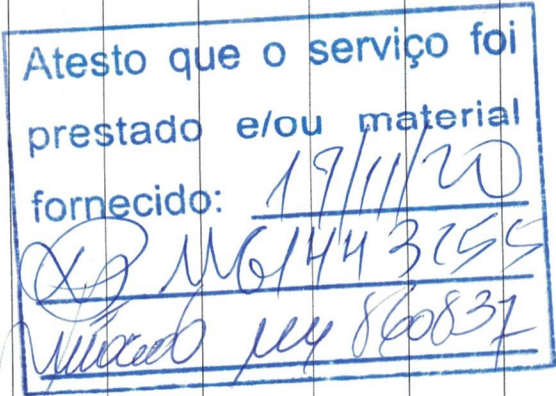 Atesto que o serviço foi
prestado e/ou material
fornecido: 19/11/20
MG1443255
860837